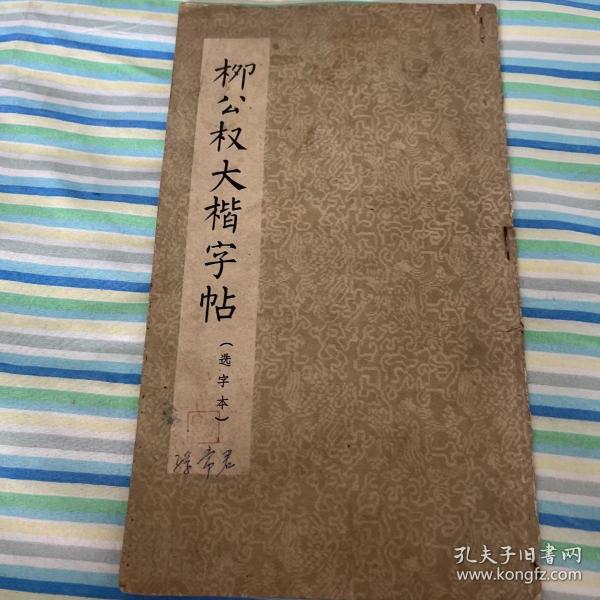 柳公权大楷字帖
（选字本）
孔夫子旧書网
www.kongfz.com